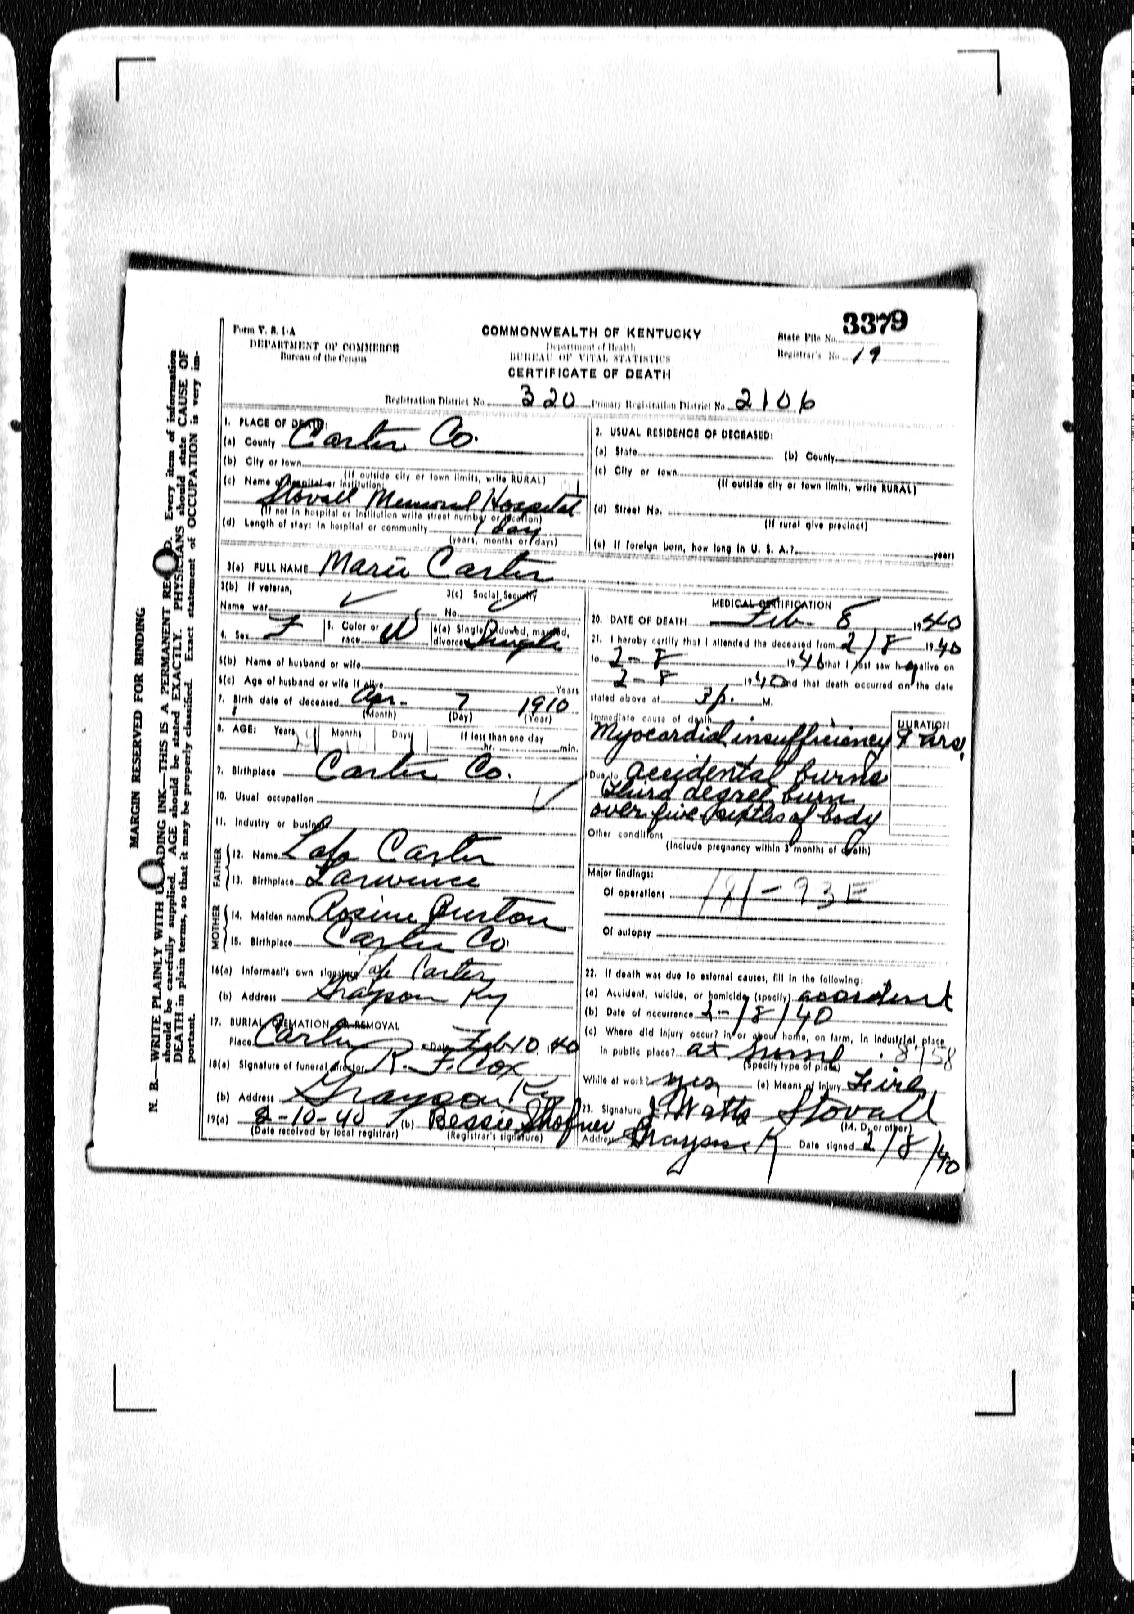 3379
Form V. S. 1-A
DEPARTMENT OF COMMERCE
Bureau of the Census
COMMONWEALTH OF KENTUCKY
Department of Health
BUREAU OF VITAL STATISTICS
CERTIFICATE OF DEATH
State File No.
Registrar's No. 19
Registration District No. 320 Primary Registration District No. 2106
MARGIN RESERVED FOR BINDING
N. B.—WRITE PLAINLY WITH UNFADING INK—THIS IS A PERMANENT RECORD. Every item of information
should be carefully supplied. AGE should be stated EXACTLY. PHYSICIANS should state CAUSE OF
DEATH in plain terms, so that it may be properly classified. Exact statement of OCCUPATION is very im-
portant.
1. PLACE OF DEATH:
(a) County Carter Co.
(b) City or town
(If outside city or town limits, write RURAL)
(c) Name of hospital or institution:
Stovall Memorial Hospital
(If not in hospital or institution write street number or location)
(d) Length of stay: In hospital or community 1 day
(years, months or days)
2. USUAL RESIDENCE OF DECEASED:
(a) State (b) County
(c) City or town
(If outside city or town limits, write RURAL)
(d) Street No.
(If rural give precinct)
(e) If foreign born, how long in U. S. A.? years
3(a) FULL NAME Marie Carter
3(b) If veteran, 3(c) Social Security
Name war No.
4. Sex F 5. Color or race W 6(a) Single, widowed, married, divorced Single
6(b) Name of husband or wife
6(c) Age of husband or wife if alive Years
7. Birth date of deceased Apr. 7 1910
(Month) (Day) (Year)
8. AGE: Years Months Days If less than one day
hr. min.
9. Birthplace Carter Co.
10. Usual occupation
11. Industry or business
FATHER
12. Name Lafe Carter
13. Birthplace Lawrence
MOTHER
14. Maiden name Rosine Burton
15. Birthplace Carter Co
16(a) Informant's own signature Lafe Carter
(b) Address Grayson Ky
17. BURIAL CREMATION OR REMOVAL
Place Carter Date Feb 10 40
18(a) Signature of funeral director R. F. Cox
(b) Address Grayson Ky
19(a) 2-10-40 (b) Bessie Shofner
(Date received by local registrar) (Registrar's signature)
MEDICAL CERTIFICATION
20. DATE OF DEATH Feb. 8 1940
21. I hereby certify that I attended the deceased from 2/8 1940
to 2-8 1940 that I last saw her alive on
2-8 1940 and that death occurred on the date
stated above at 3 p. M.
Immediate cause of death DURATION
Myocardial insufficiency 7 hrs.
Due to accidental burns
third degree burn
over five-sixths of body
Other conditions
(Include pregnancy within 3 months of death)
Major findings:
Of operations 181-93E
Of autopsy
22. If death was due to external causes, fill in the following:
(a) Accident, suicide, or homicide (specify) accident
(b) Date of occurrence 2-/8/40
(c) Where did injury occur? in or about home, on farm, in industrial place
in public place? at home 8758
(Specify type of place)
While at work? yes (e) Means of Injury Fire
23. Signature J. Watts Stovall
(M. D. or other)
Address Grayson K Date signed 2/8/40